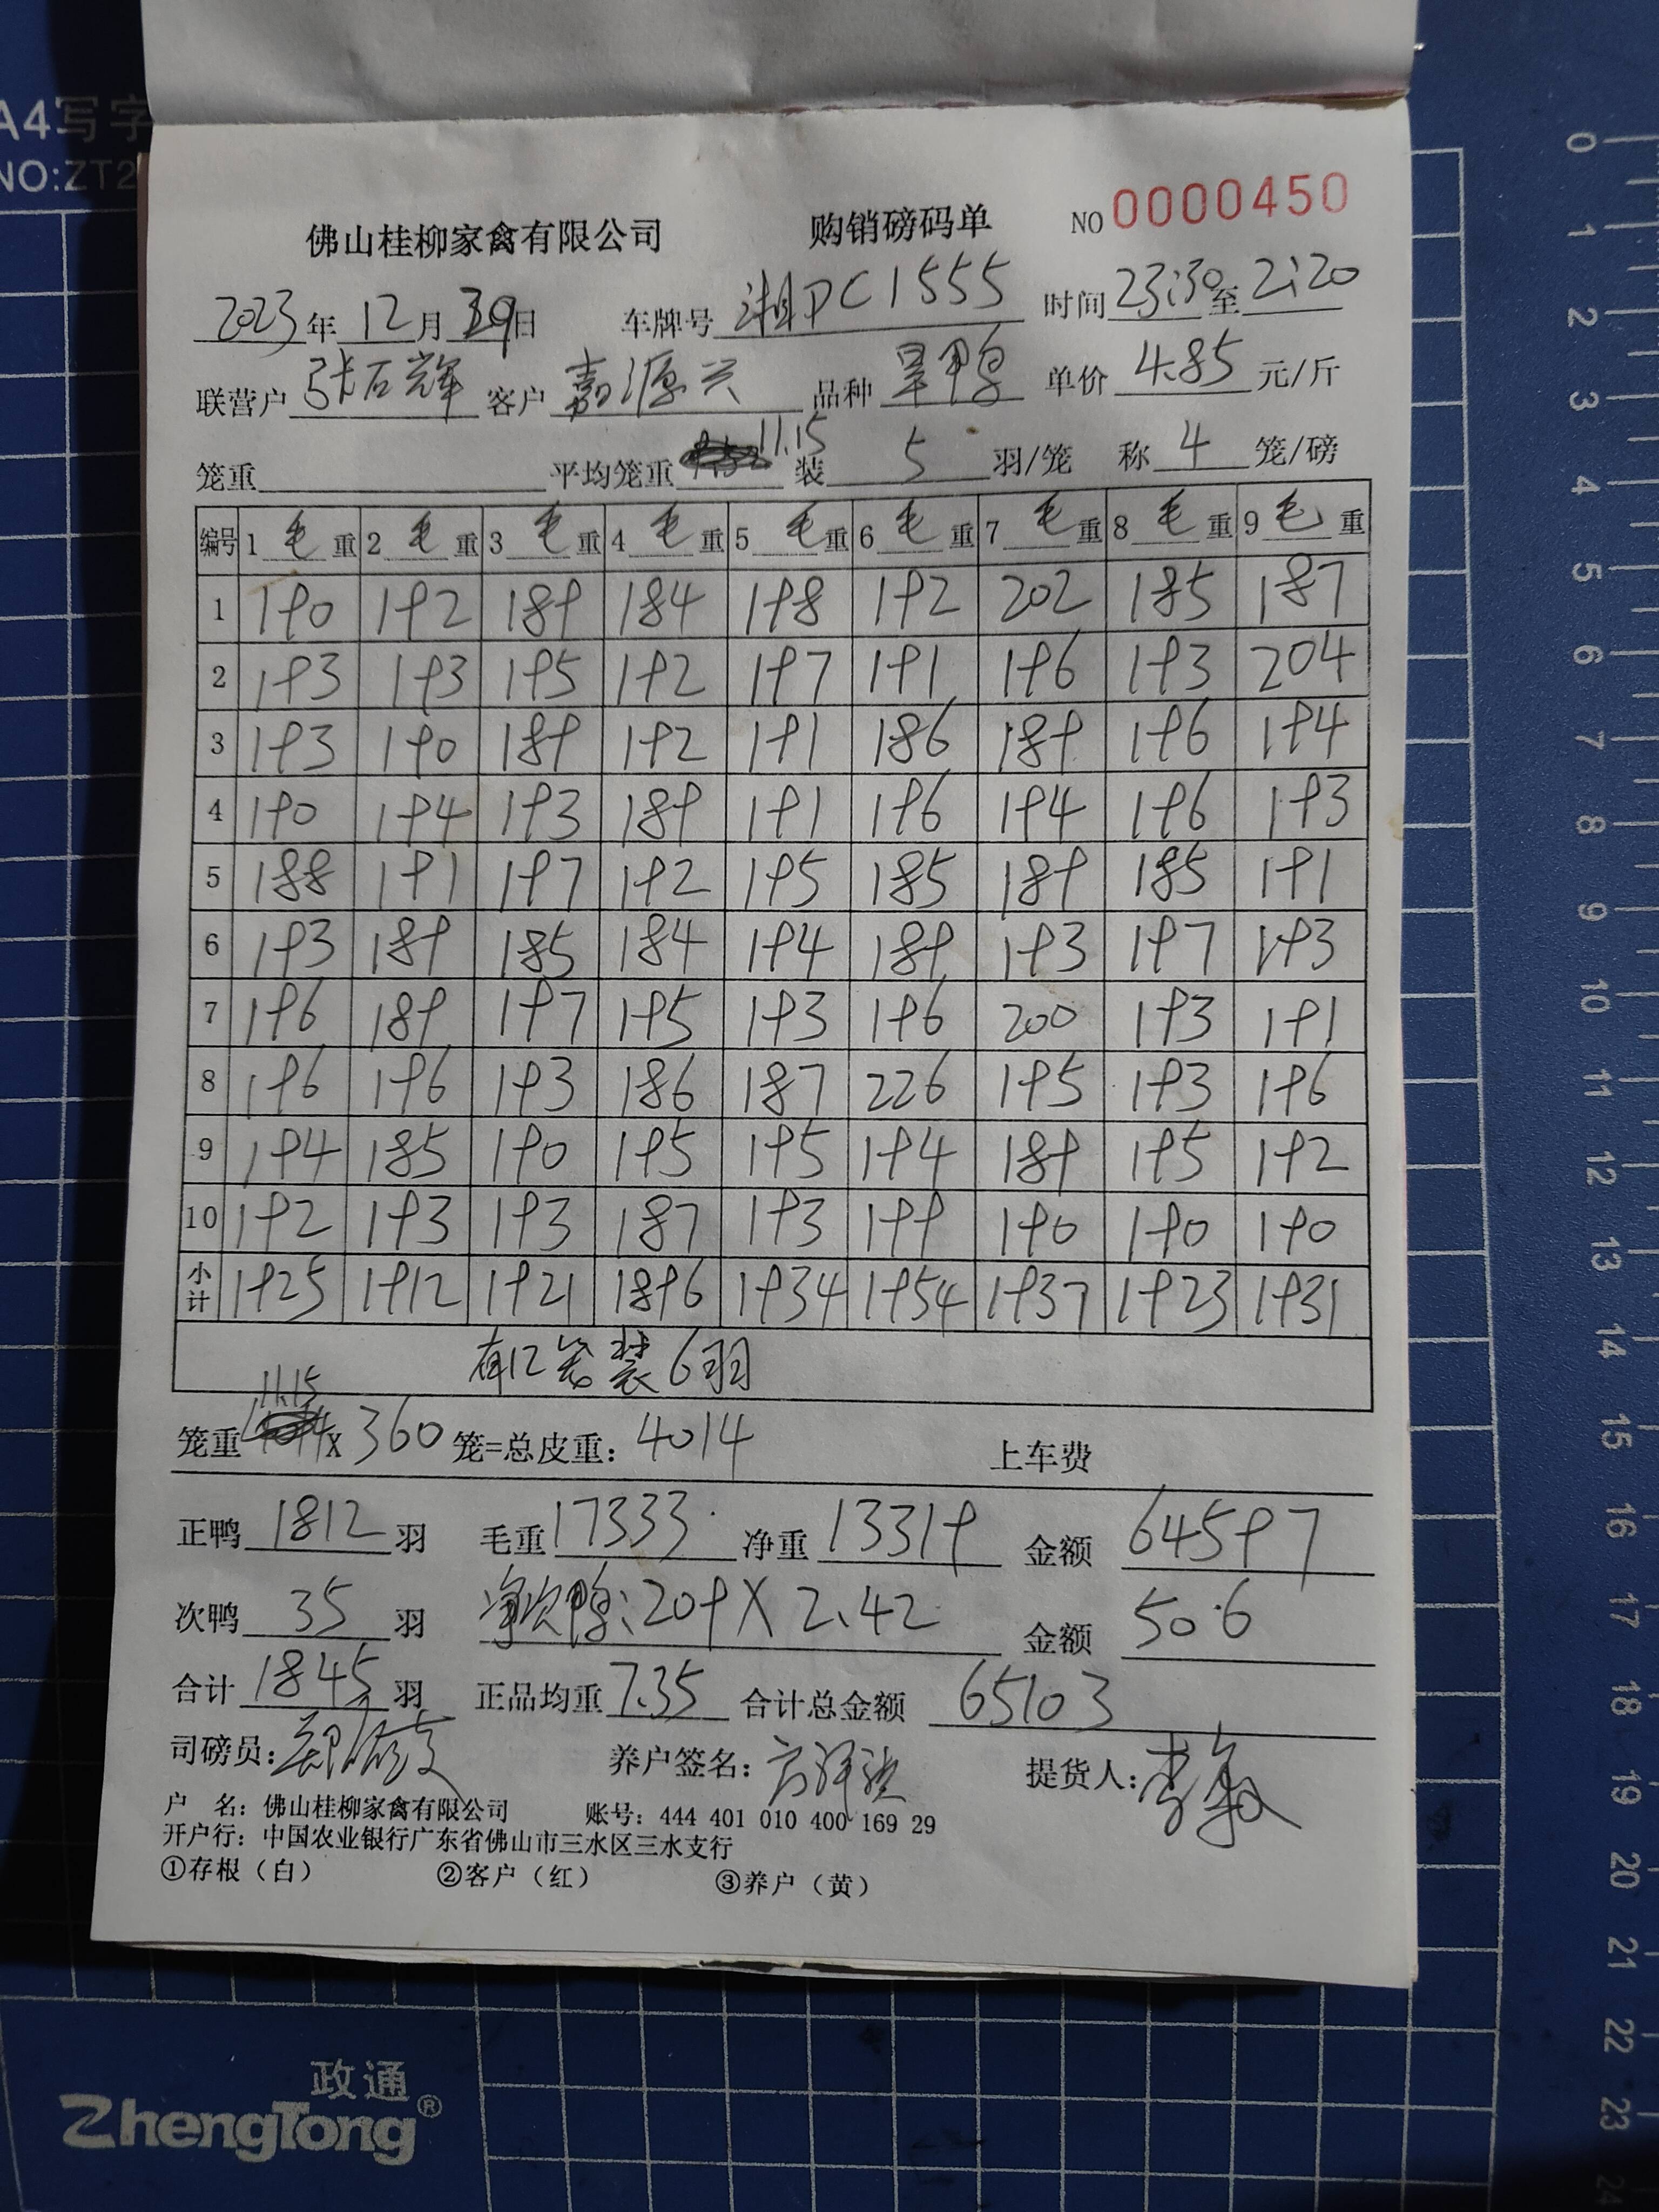 A4写字
NO:ZT2
佛山桂柳家禽有限公司 购销磅码单 NO 0000450
2023年12月29日 车牌号 湘DC1555 时间 23:30至2:20
联营户 张石辉 客户 嘉源兴 品种 旱鸭 单价 4.85 元/斤
笼重 平均笼重 11.15 装 5 羽/笼 称 4 笼/磅
编号 1 毛 重 2 毛 重 3 毛 重 4 毛 重 5 毛 重 6 毛 重 7 毛 重 8 毛 重 9 毛 重
1 190 192 189 184 198 192 202 185 187
2 193 193 195 192 197 191 196 193 204
3 193 190 189 192 191 186 189 196 194
4 190 194 193 189 191 196 194 196 193
5 188 191 197 192 195 185 189 185 191
6 193 189 185 184 194 189 193 197 193
7 196 189 197 195 193 196 200 193 191
8 196 196 193 186 187 226 195 193 196
9 194 185 190 195 195 194 189 195 192
10 192 193 193 187 193 199 190 190 190
小计 1925 1912 1921 1896 1934 1954 1937 1923 1931
有12笼装6羽
笼重 11.15 X 360 笼=总皮重: 4014 上车费
正鸭 1812 羽 毛重 17333 净重 13319 金额 64597
次鸭 35 羽 净次鸭:209X2.42 金额 506
合计 1845 羽 正品均重 7.35 合计总金额 65103
司磅员: 养户签名: 提货人: 李
户 名: 佛山桂柳家禽有限公司 账号: 444 401 010 400 169 29
开户行: 中国农业银行广东省佛山市三水区三水支行
①存根(白) ②客户(红) ③养户(黄)
政通
ZhengTong®
0
1
2
3
4
5
6
7
8
9
10
11
12
13
14
15
16
17
18
19
20
21
22
23
24